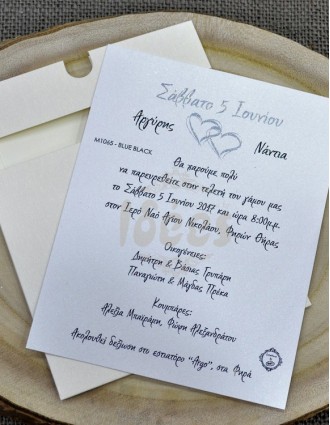 Σάββατο 5 Ιουνίου
Αργύρης
Νάντια
M1065 - BLUE BLACK
Θα χαρούμε πολύ
να παρευρεθείτε στην τελετή του γάμου μας
το Σάββατο 5 Ιουνίου 2017 και ώρα 8:00μ.μ.
στον Ιερό Ναό Αγίου Νικολάου, Φηρών Θήρας
Οικογένειες:
Δημήτρη & Βάσιας Γρυπάρη
Παναγιώτη & Μάγδας Πρέκα
Κουμπάροι:
Αλεξία Μπαϊράμη, Φώφη Αλεξανδράτου
Ακολουθεί δεξίωση στο εστιατόριο "Argo", στα Φηρά